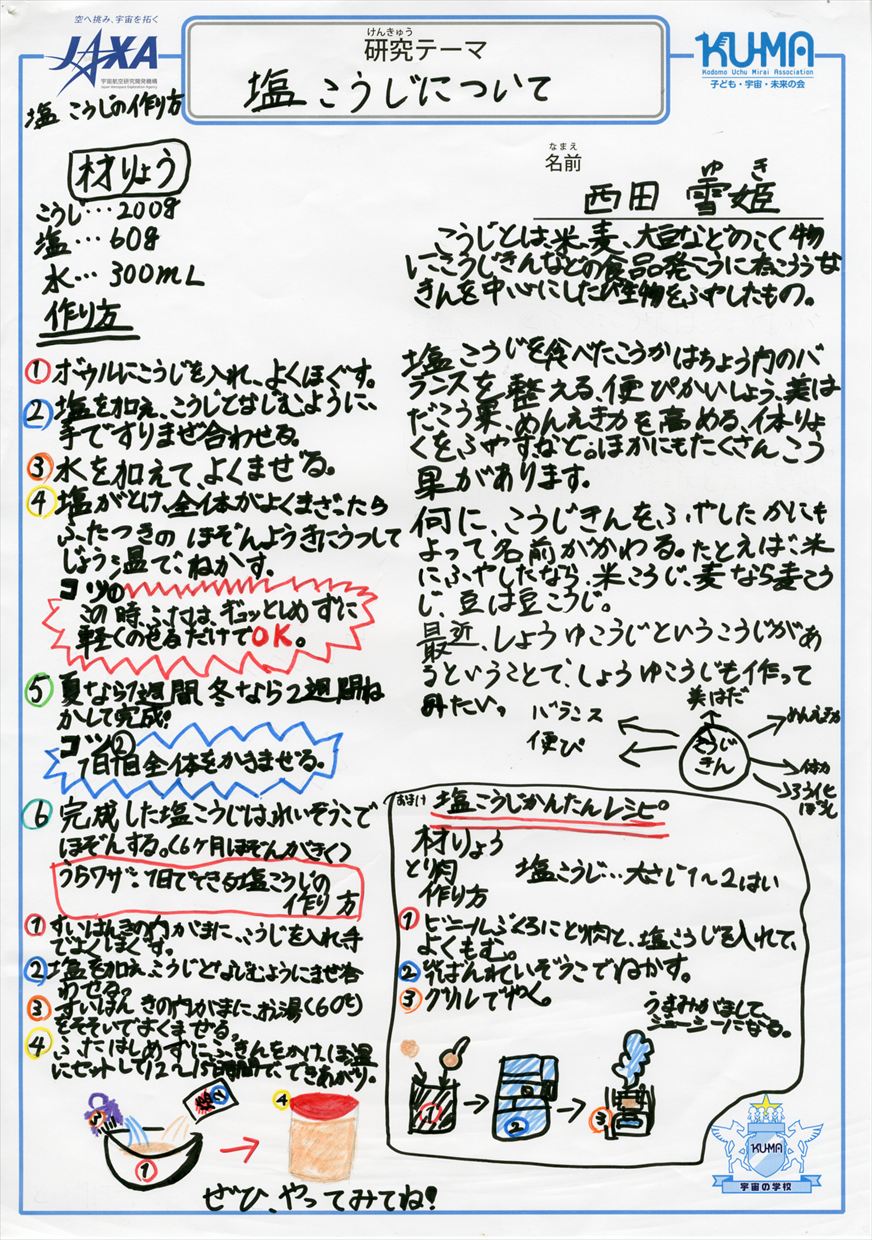 空へ挑み、宇宙を拓く
JAXA
宇宙航空研究開発機構
Japan Aerospace Exploration Agency
けんきゅう
研究テーマ
塩こうじについて
KU-MA
Kodomo Uchu Mirai Association
子ども・宇宙・未来の会
塩こうじの作り方
なまえ
名前
ゆき
西田 雪姫
材りょう
こうじ…200g
塩…60g
水…300mL
作り方
①ボウルにこうじを入れ、よくほぐす。
②塩を加え、こうじとなじむように、
手ですりまぜ合わせる。
③水を加えて、よくまぜる。
④塩がとけ、全体がよくまざったら
ふたつきのほぞんようきにうつして
じょう温で、ねかす。
コツ①
この時、ふたは、ギュッとしめずに
軽くのせるだけでOK。
⑤夏なら1週間、冬なら2週間ね
かして完成!
コツ②
1日1回全体をかきまぜる。
⑥完成した塩こうじは、れいぞうこで
ほぞんする。(6ヶ月ほぞんがきく)
うらワザ・1日でできる塩こうじの
作り方
①すいはんきの内がまに、こうじを入れ手
でよくほぐす。
②塩を加え、こうじとなじむようにまぜ合
わせる。
③すいはんきの内がまに、お湯(60℃)
をそそいでよくまぜる。
④ふたはしめずにふきんをかけ、ほ温
にセットして12〜15時間で、できあがり。
こうじとは、米、麦、大豆などのこく物
にこうじきんなどの食品発こうにゆうこうな
きんを中心にしたび生物をふやしたもの。
塩こうじを食べたこうかはちょう内のバ
ランスを整える、便ぴかいしょう、美は
だこう果、めんえき力を高める、体りょ
くをふやすなど。ほかにもたくさんこう
果があります。
何に、こうじきんをふやしたかにも
よって名前がかわる。たとえば、米
にふやしたなら、米こうじ、麦なら麦こう
じ、豆は豆こうじ。
最近、しょうゆこうじというこうじがあ
るということで、しょうゆこうじも作って
みたい。
バランス
便ぴ
美はだ
こうじ
きん
めんえき力
体力
ろう化
ぼう止
おまけ 塩こうじかんたんレシピ
材りょう
とり肉 塩こうじ…大さじ1〜2はい
作り方
①ビニールぶくろにとり肉と、塩こうじを入れて、
よくもむ。
②1ばんれいぞうこでねかす。
③グリルでやく。
うまみがまして、
ジューシーになる。
① ② ③
① ② ③
④
ぜひ、やってみてね!
KU-MA
宇宙の学校